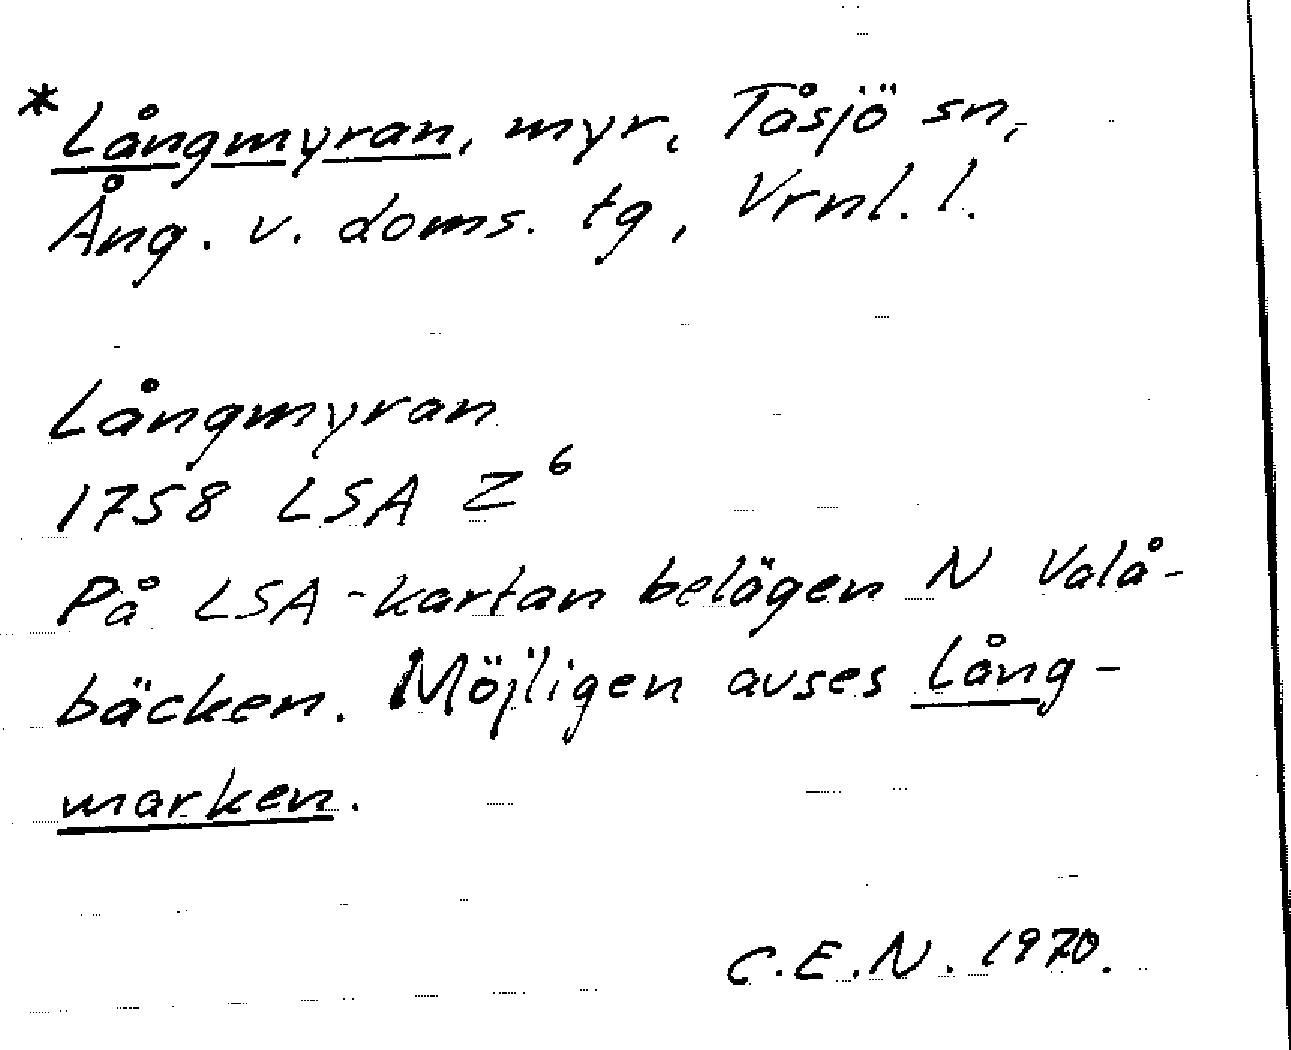 *Långmyran, myr, Tåsjö sn,
Ång. v. doms. tg, Vrnl. l.
Långmyran
1758 LSA Z⁶
På LSA-kartan belägen N Valå-
bäcken. Möjligen avses Lång-
marken.
C.E.N. 1970.